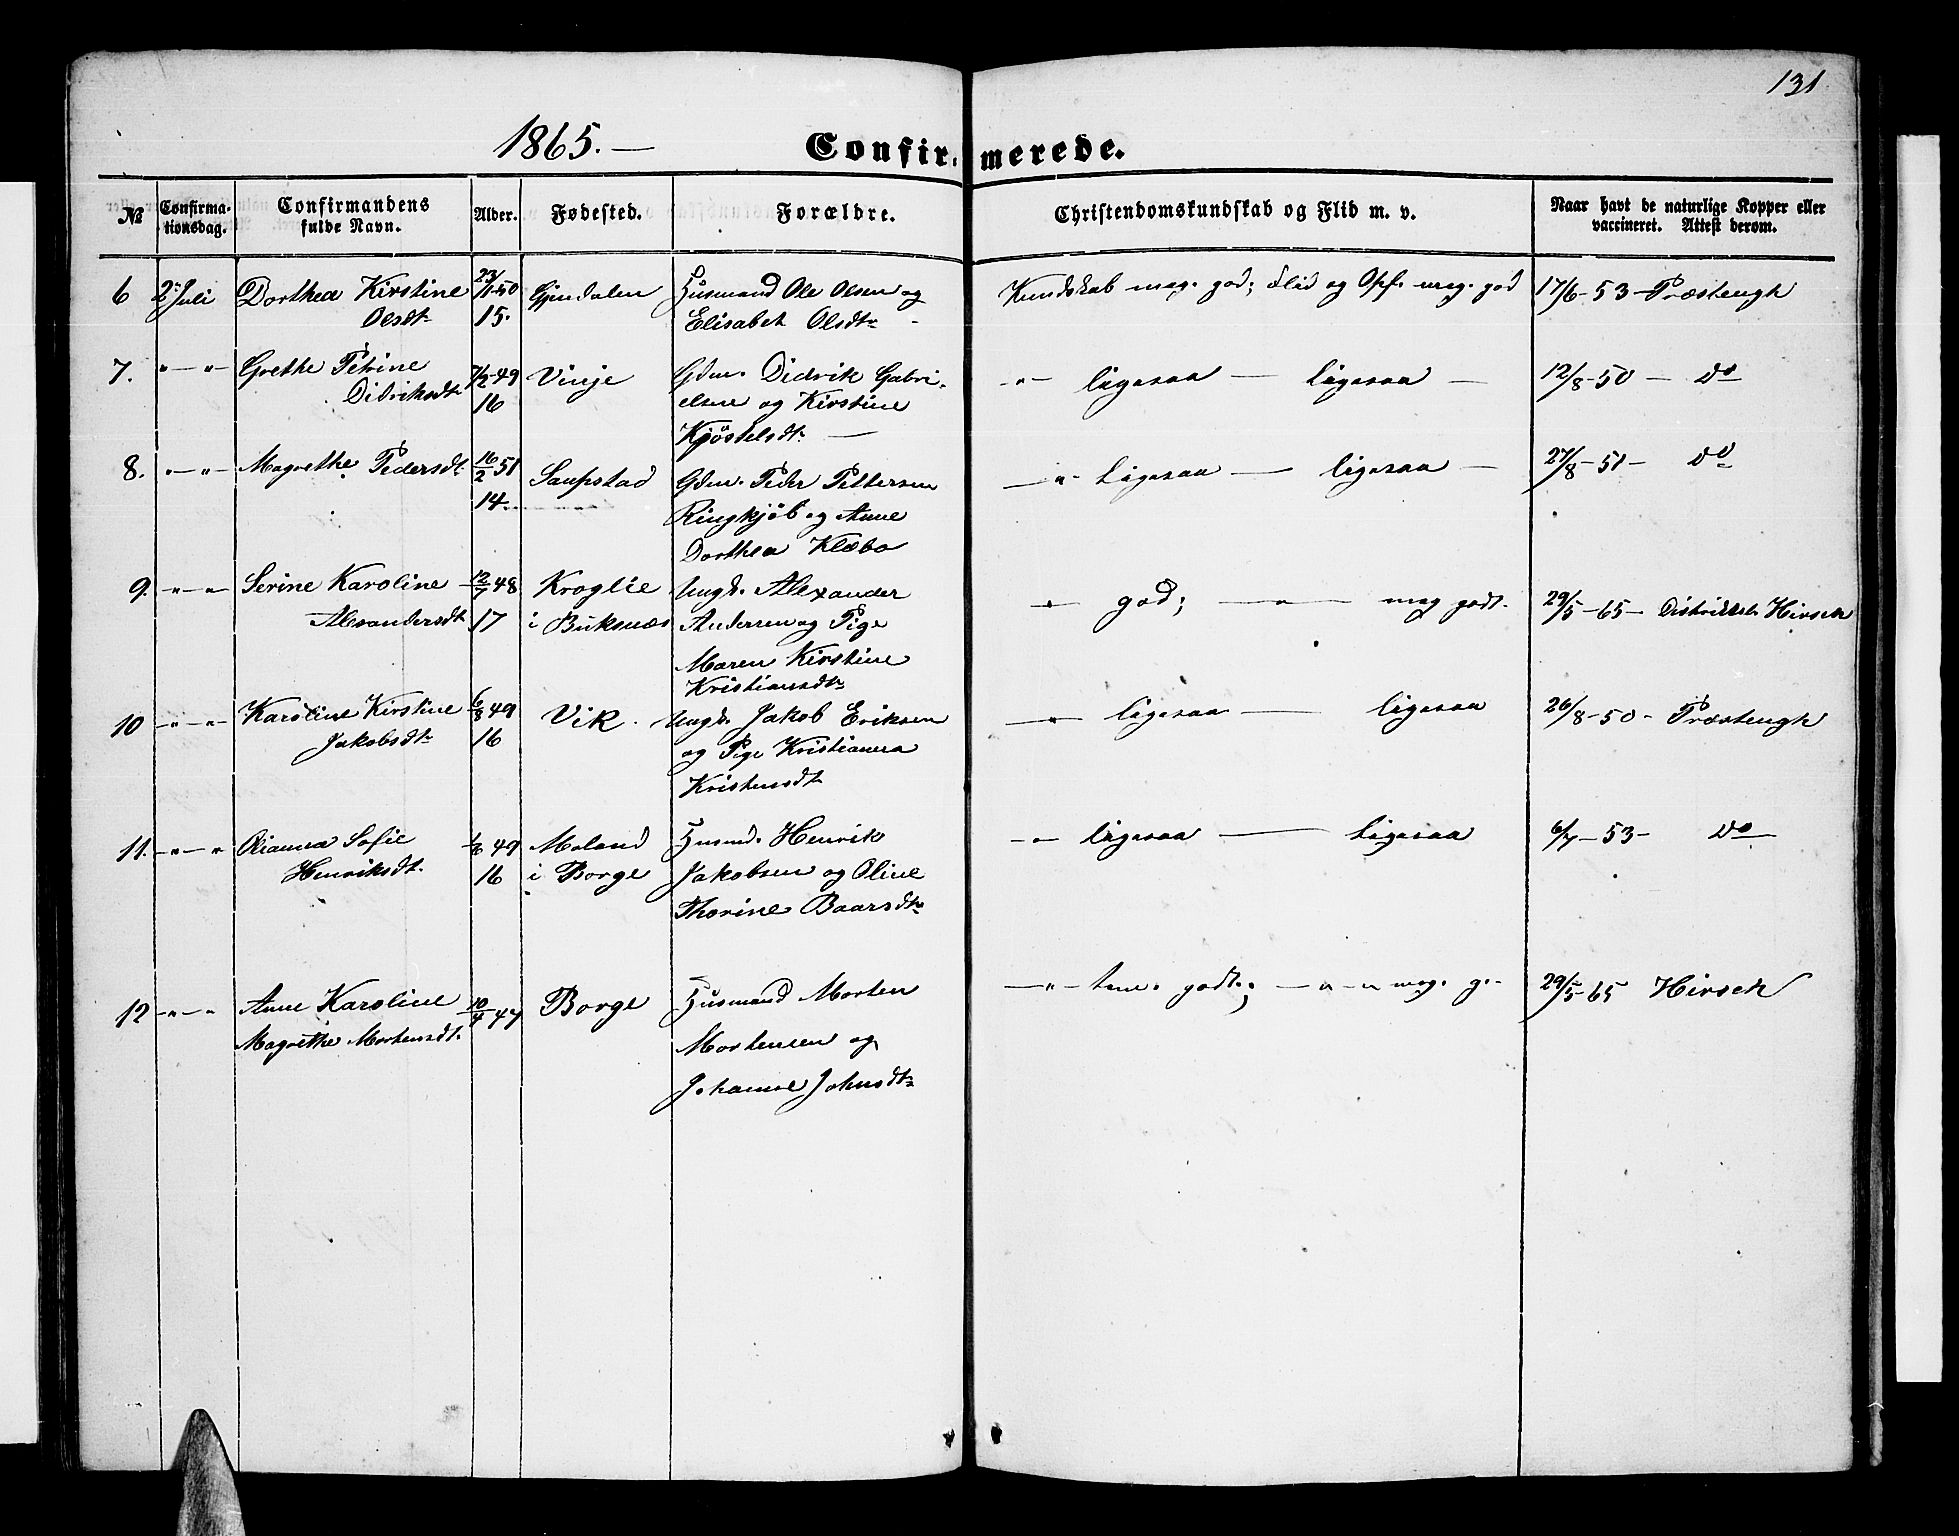 131
1865. —
Confirmerede.
№ Confirma-tionsdag. Confirmandens fulde Navn. Alder. Fødested. Forældre. Christendomskundskab og Flid m. v. Naar havt de naturlige Kopper eller vaccineret. Attest derom.
6 2. Juli Dorthea Kirstine 23/11-50 Gjerdalen Husmand Ole Olsen og Kundskab meg. god; Flid og Opf. meg. god 17/6-53-Præstengh
Olsdtr 15. Elisabet Olsdtr
7. " — " Grethe Petrine 7/2-49 Vinje Gdm. Didrik Gabri- — " — ligesaa — ligesaa — 12/8-50 — Do
Didriksdt. 16 elsen og Kirstine
Kjøstelsdt. —
8. " — " Magrethe Pedersdt. 16/2 51 Saupstad Gdm. Peder Pettersen — " — Ligesaa — ligesaa — 27/8-51- Do
14. Ringkjøb og Anne
Dorthea Klæbo
9. " — " Serine Karoline 12/7 48 Kroglie Ungk. Alexander — " — god; — " — meg godt. 29/5-65- Distriktsl. Hirsch
Alexandersdt. 17 i Buksnæs Andersen og Pige
Maren Kirstine
Kristiansdtr
10 " — " Karoline Kirstine 6/8 49 Vik. Ungk. Jakob Eriksen — " — ligesaa — ligesaa 26/8-50- Præstengh
Jakobsdtr 16 og Pige Kristianna
Kristensdt.
11. " — " Olianna Sofie 49 Moland Husmd. Henrik — " — ligesaa — Ligesaa 6/7-53- Do
Henriksdt. 16 i Borge Jakobsen og Oline
Thorine Baarsdtr
12 " — " Anne Karoline 10/4 47 Borge Husmand Morten — " — tem. godt; — " — " meg. g. 29/5-65 Hirsch
Magrethe Mortensdt. Mortensen og
Johanne Johnsdtr